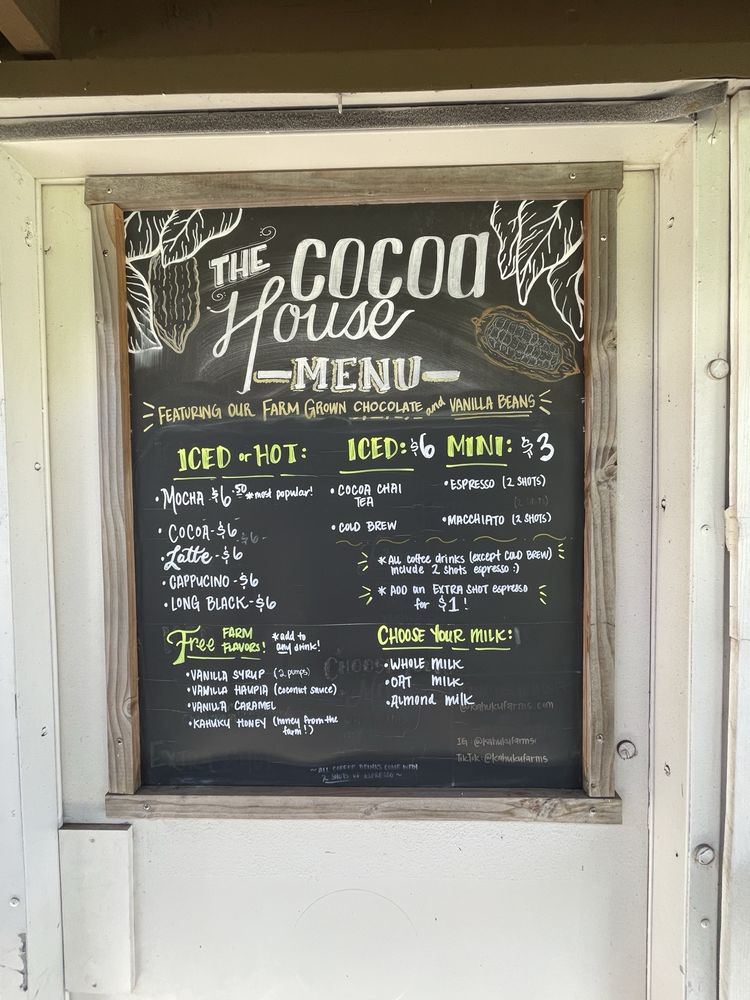 THE COCOA
House
MENU
FEATURING OUR FARM GROWN CHOCOLATE and VANILLA BEANS
ICED or HOT:
• MOCHA $6.50 *most popular!
• COCOA - $6
• Latte - $6
• CAPPUCINO - $6
• LONG BLACK - $6
ICED: $6
• COCOA CHAI
TEA
• COLD BREW
MINI: $3
• ESPRESSO (2 SHOTS)
(2 SHOTS)
• MACCHIATO (2 SHOTS)
*ALL coffee drinks (except COLD BREW)
include 2 shots espresso :)
* ADD an EXTRA SHOT espresso
for $1!
Free FARM
FLAVORS!
*add to
any drink!
• VANILLA SYRUP (2 pumps)
• VANILLA HAUPIA (coconut sauce)
• VANILLA CARAMEL
• KAHUKU HONEY (honey from the
farm!)
CHOOSE YOUR MILK:
• WHOLE MILK
• OAT MILK
• Almond milk
@kahukufarms.com
IG: @kahukufarms
TikTok: @kahukufarms
~ALL COFFEE DRINKS COME WITH
2 SHOTS OF ESPRESSO~